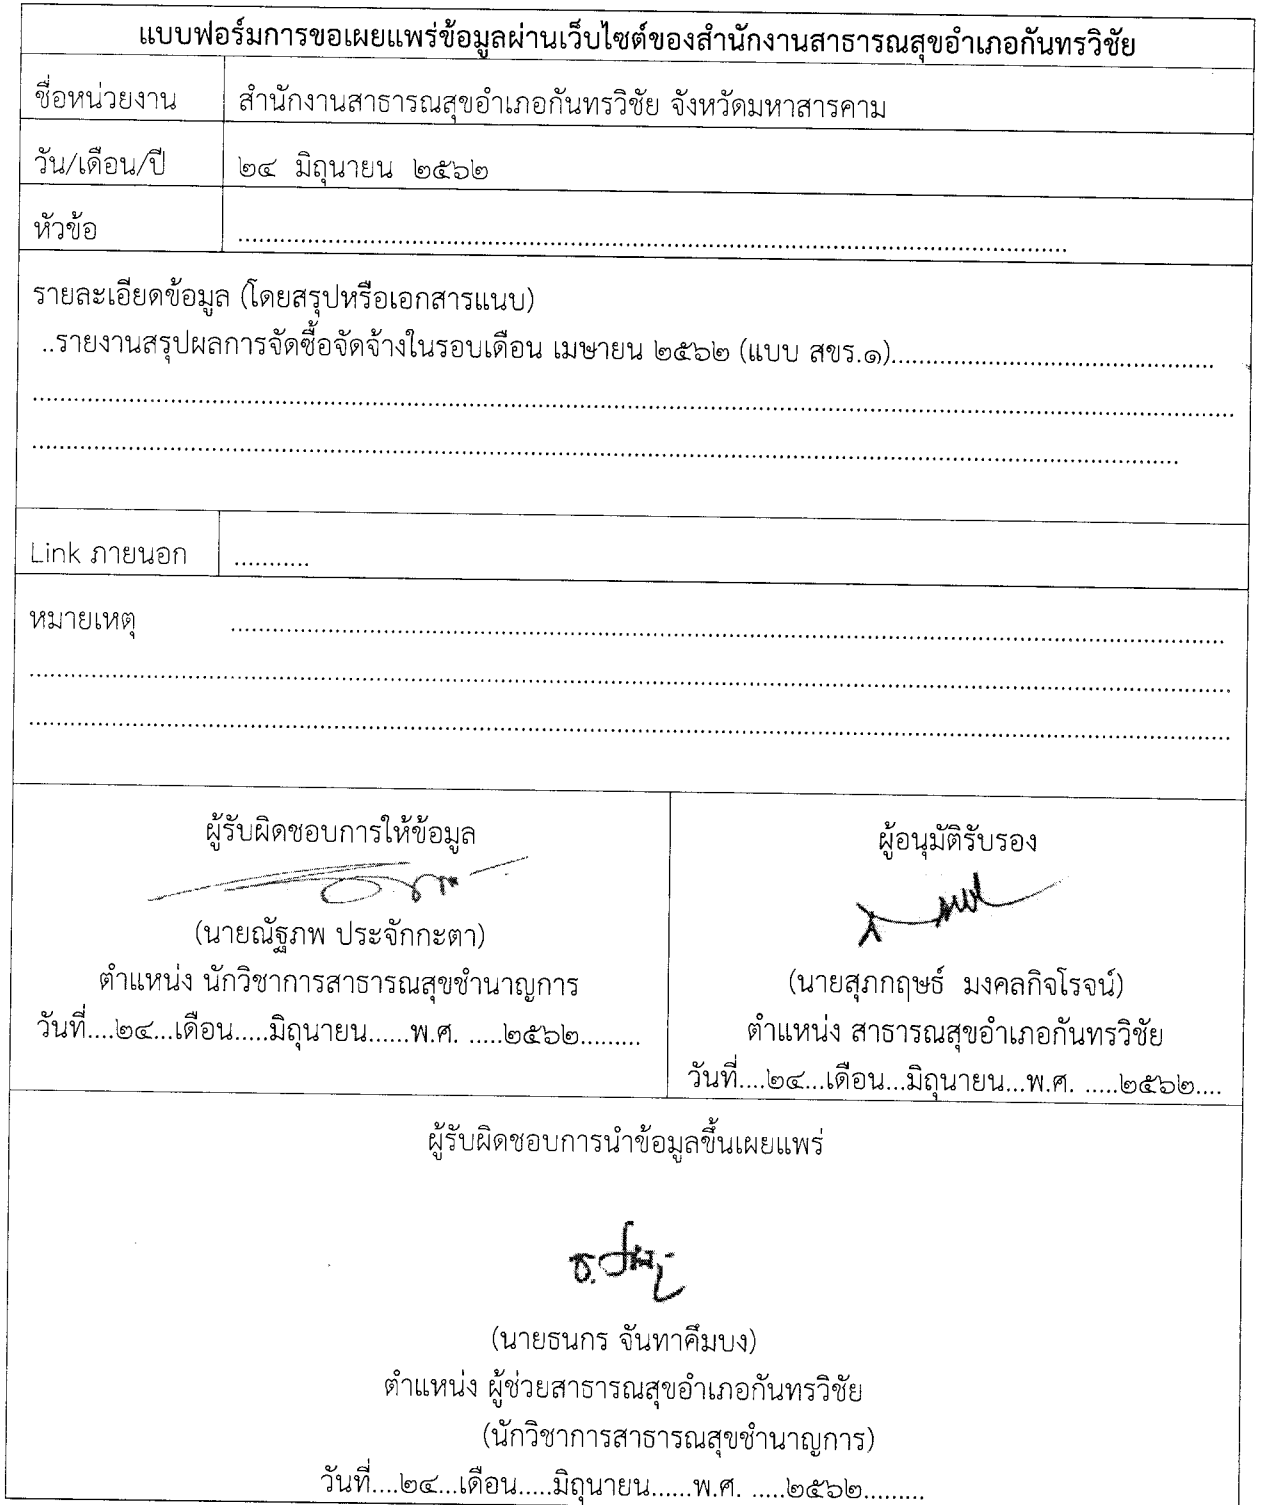 แบบฟอร์มการขอเผยแพร่ข้อมูลผ่านเว็บไซต์ของสำนักงานสาธารณสุขอำเภอกันทรวิชัย
ชื่อหน่วยงาน สำนักงานสาธารณสุขอำเภอกันทรวิชัย จังหวัดมหาสารคาม
วัน/เดือน/ปี ๒๔ มิถุนายน ๒๕๖๒
หัวข้อ ........................................................................................................................
รายละเอียดข้อมูล (โดยสรุปหรือเอกสารแนบ)
..รายงานสรุปผลการจัดซื้อจัดจ้างในรอบเดือน เมษายน ๒๕๖๒ (แบบ สขร.๑)................................................
................................................................................................................................................................
................................................................................................................................................................
Link ภายนอก ...........
หมายเหตุ ................................................................................................................................
................................................................................................................................................................
................................................................................................................................................................
ผู้รับผิดชอบการให้ข้อมูล
(นายณัฐภพ ประจักกะตา)
ตำแหน่ง นักวิชาการสาธารณสุขชำนาญการ
วันที่....๒๔...เดือน.....มิถุนายน......พ.ศ. .....๒๕๖๒.........
ผู้อนุมัติรับรอง
(นายสุภกฤษธ์ มงคลกิจโรจน์)
ตำแหน่ง สาธารณสุขอำเภอกันทรวิชัย
วันที่....๒๔...เดือน...มิถุนายน...พ.ศ. .....๒๕๖๒....
ผู้รับผิดชอบการนำข้อมูลขึ้นเผยแพร่
(นายธนกร จันทาคึมบง)
ตำแหน่ง ผู้ช่วยสาธารณสุขอำเภอกันทรวิชัย
(นักวิชาการสาธารณสุขชำนาญการ)
วันที่....๒๔...เดือน.....มิถุนายน......พ.ศ. .....๒๕๖๒.........